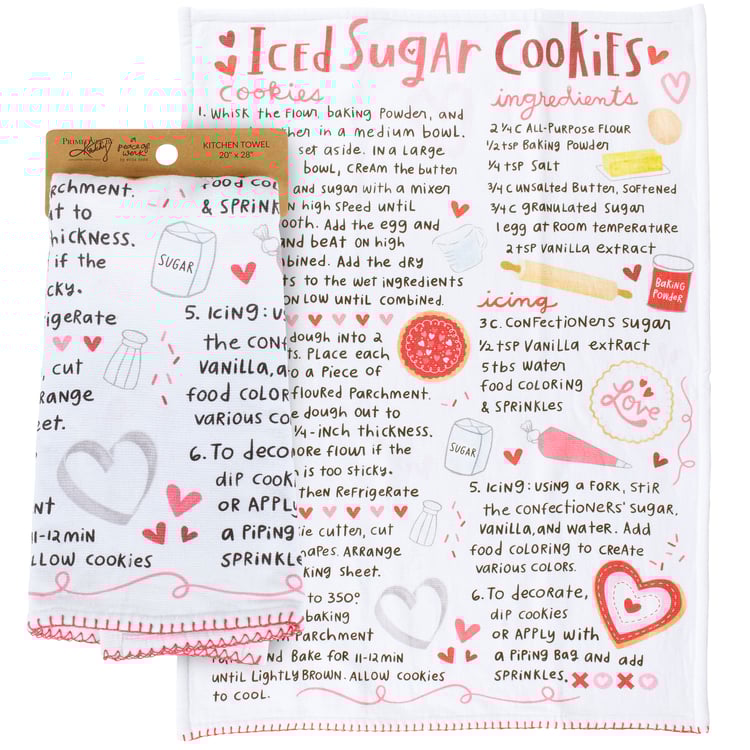 Iced Sugar Cookies
cookies
1. Whisk the flour, baking powder, and
in a medium bowl.
set aside. In a large
bowl, cream the butter
and sugar with a mixer
on high speed until
Add the egg and
and beat on high
Add the dry
to the wet ingredients
on low until combined.
dough into 2
Place each
a piece of
floured parchment.
dough out to
1/4-inch thickness.
more flour if the
is too sticky.
then refrigerate
cutter, cut
Arrange
sheet.
to 350°
baking
parchment
and bake for 11-12 min
until lightly brown. Allow cookies
to cool.
ingredients
2 1/4 c all-purpose flour
1/2 tsp baking powder
1/4 tsp salt
3/4 c unsalted butter, softened
3/4 c granulated sugar
1 egg at room temperature
2 tsp vanilla extract
Baking
Powder
icing
3 c. confectioners sugar
1/2 tsp vanilla extract
5 tbs water
food coloring
& sprinkles
Love
Sugar
5. Icing: using a fork, stir
the confectioners' sugar,
vanilla, and water. Add
food coloring to create
various colors.
6. To decorate,
dip cookies
or apply with
a piping bag and add
sprinkles. XOXO
Kathy
KITCHEN TOWEL
20" x 28"
food col
& sprink
to
thickness.
if the
Sugar
5. Icing: us
the conf
vanilla, a
food color
various co
cut
6. To decor
dip cook
or apply
a piping
sprinkle
11-12 min
cookies